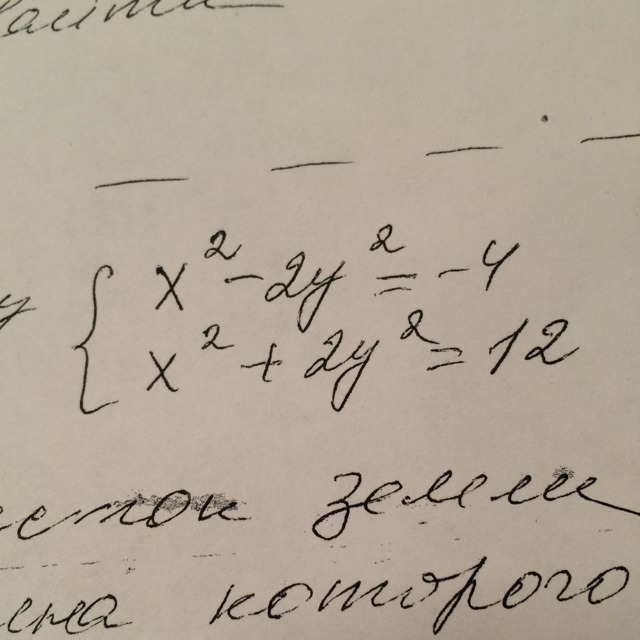 у { x² - 2y² = -4
x² + 2y² = 12
земли
которого